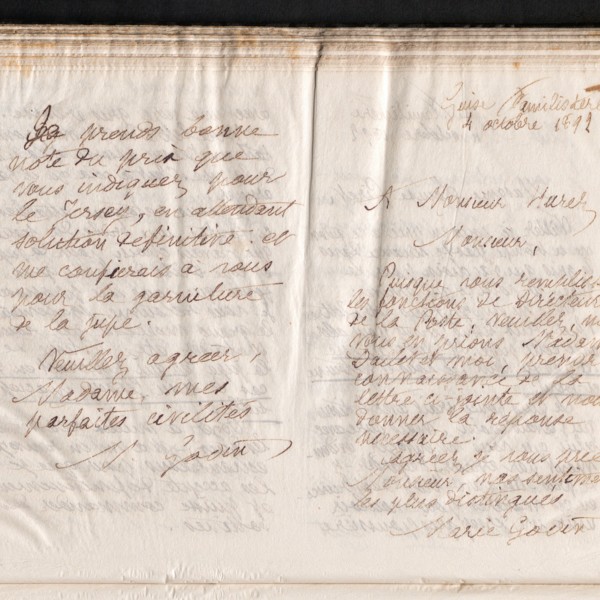 Je prends bonne
note du prix que
vous indiquez pour
le Jersey, en attendant
solution définitive et
me confierais à vous
pour la garniture
de la jupe.
Veuillez agréer,
Madame, mes
parfaites civilités
M Godin
Guise Familistère
4 octobre 1892
A Monsieur Hurez
Monsieur,
Puisque vous remplissez
les fonctions de Directeur
de la Poste, veuillez, n
vous en prions Madam
et moi, prendre
connaissance de la
lettre ci-jointe et nou
donner la réponse
nécessaire.
Agréez je vous prie
Monsieur, nos sentime
les plus distingués
Marie Godin